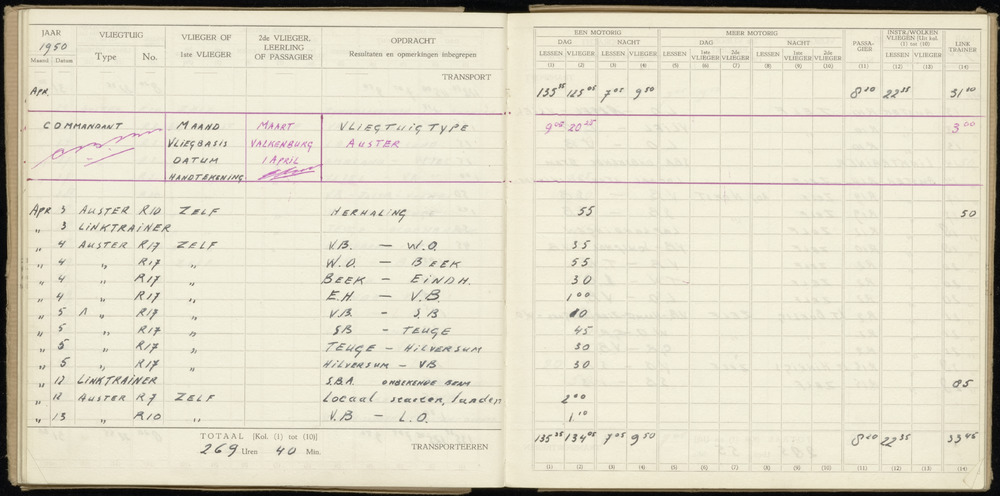 JAAR VLIEGTUIG VLIEGER OF 2de VLIEGER, OPDRACHT EEN MOTORIG MEER MOTORIG PASSA- INSTR./WOLKEN LINK
1950 Type No. 1ste VLIEGER LEERLING Resultaten en opmerkingen inbegrepen DAG NACHT DAG NACHT GIER VLIEGEN (Uit kol. TRAINER
Maand Datum OF PASSAGIER LESSEN VLIEGER LESSEN VLIEGER LESSEN 1ste VLIEGER 2de VLIEGER LESSEN 1ste VLIEGER 2de VLIEGER (1) tot (10) LESSEN VLIEGER
(1) (2) (3) (4) (5) (6) (7) (8) (9) (10) (11) (12) (13) (14)
TRANSPORT
APR. 135 35 125 05 7 05 9 50 8 20 22 35 31 10
COMMANDANT MAAND MAART VLIEGTUIG TYPE 9 05 20 25 3 00
VLIEGBASIS VALKENBURG AUSTER
DATUM 1 APRIL
HANDTEKENING
APR 3 AUSTER R10 ZELF HERHALING 55 50
„ 3 LINKTRAINER
„ 4 AUSTER R17 ZELF V.B. — W.O. 35
„ 4 „ R17 „ W.O. — BEEK 55
„ 4 „ R17 „ BEEK — EINDH. 30
„ 4 „ R17 „ E.H — V.B. 1 00
„ 5 „ R17 „ V.B. — S.B 10
„ 5 „ R17 „ SB — TEUGE 45
„ 5 „ R17 „ TEUGE — HILVERSUM 30
„ 5 „ R17 „ HILVERSUM — VB 30
„ 12 LINKTRAINER S.B.A. ONBEKENDE BEAM 85
„ 12 AUSTER R7 ZELF Locaal starten, landen 2 00
„ 13 „ R10 „ V.B — L.O. 1 10
TOTAAL [Kol. (1) tot (10)] TRANSPORTEEREN 135 35 134 05 7 05 9 50 8 20 22 35 33 45
269 Uren 40 Min.
(1) (2) (3) (4) (5) (6) (7) (8) (9) (10) (11) (12) (13) (14)